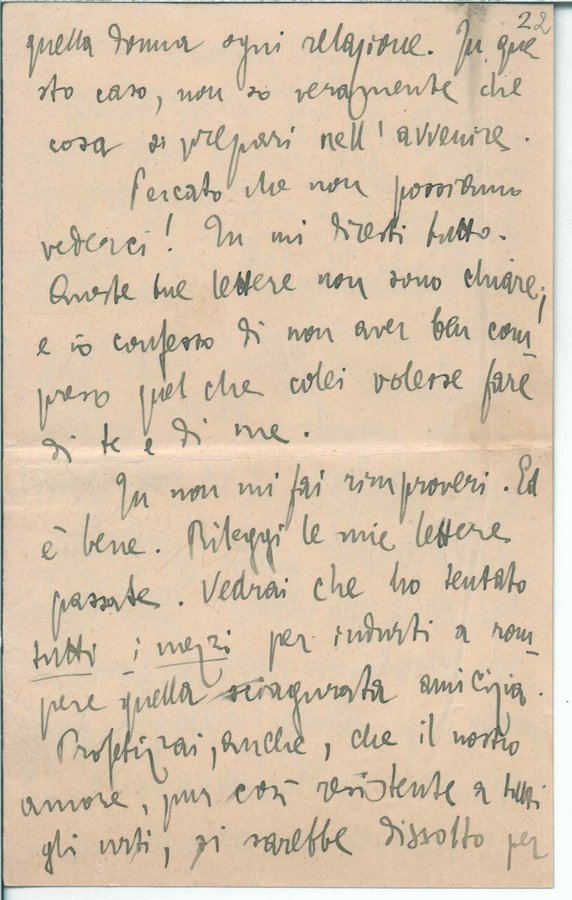 22
quella donna ogni relazione. In que
sto caso, non so veramente che
cosa si prepari nell'avvenire.
Peccato che non possiamo
vederci! Tu mi diresti tutto.
Queste tue lettere non sono chiare;
e io confesso di non aver ben com_
preso quel che colei volesse fare
di te e di me.
Tu non mi fai rimproveri. Ed
è bene. Rileggi le mie lettere
passate. Vedrai che ho tentato
tutti i mezzi per indurti a rom_
pere quella sciagurata amicizia.
Profetizzai, anche, che il nostro
amore, pur così resistente a tutti
gli urti, si sarebbe dissolto per